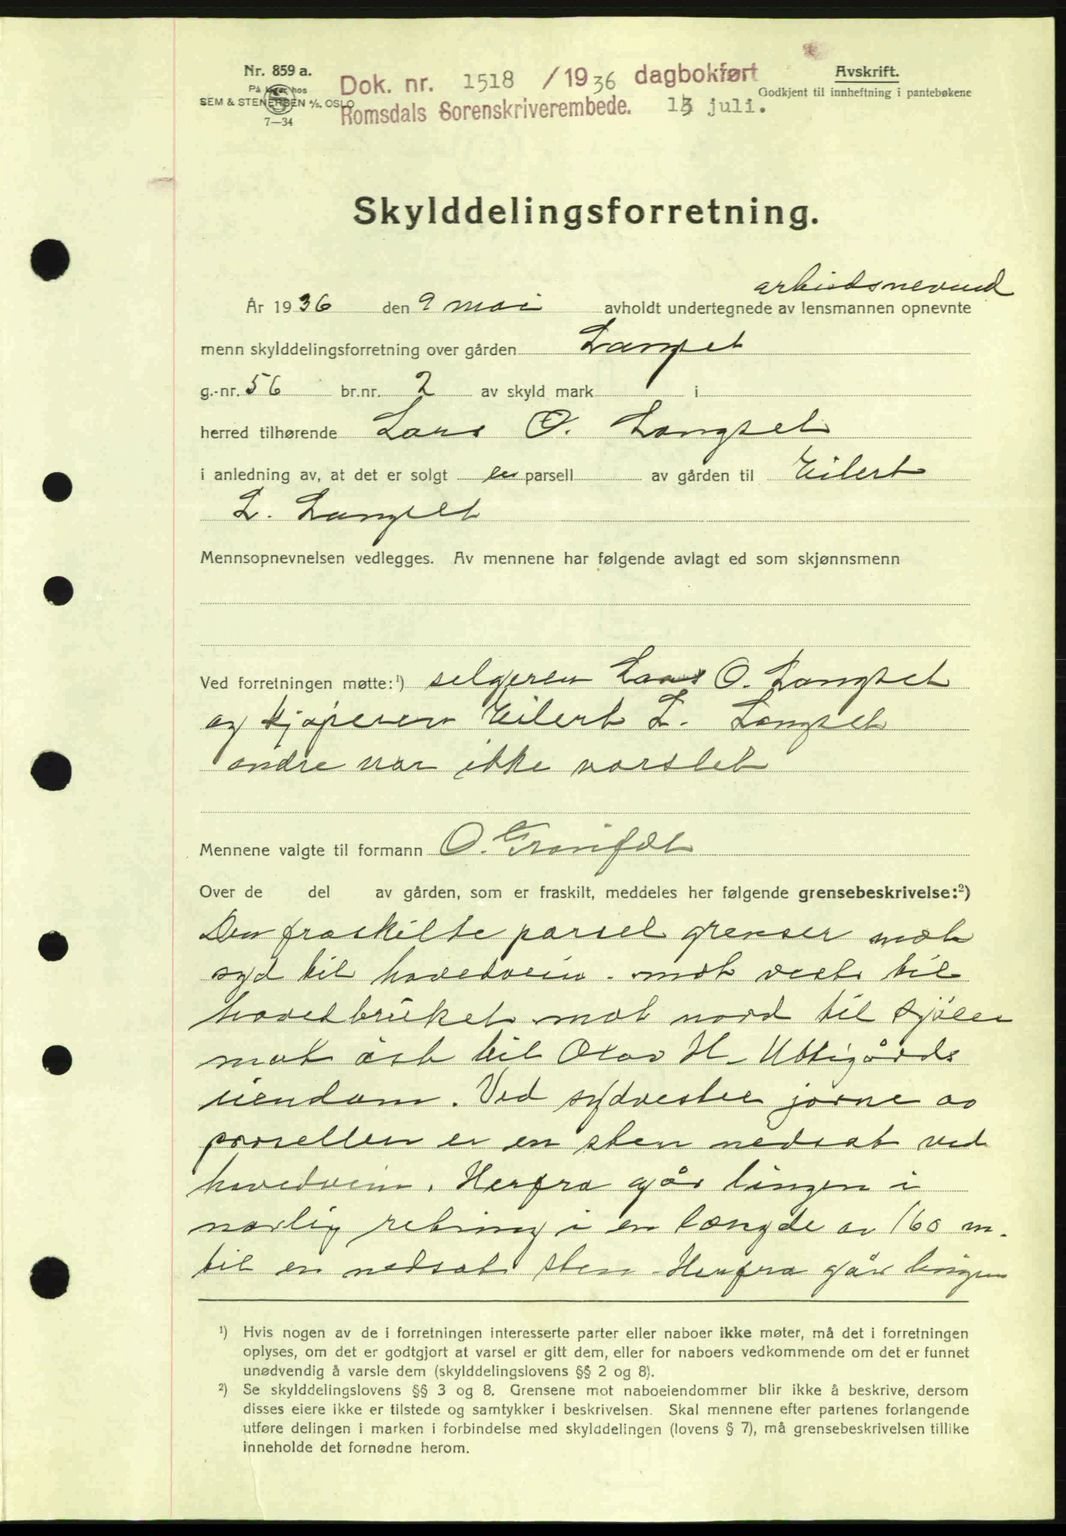 Nr. 859 a.
På lager hos
SEM & STENERSEN A/S. OSLO
7—34
Dok. nr. 1518 /1936 dagbokført
Romsdals Sorenskriverembede. 13 juli.
Avskrift.
Godkjent til innheftning i pantebøkene
Skylddelingsforretning.
arbeidsnevnd
År 1936 den 9 mai avholdt undertegnede av lensmannen opnevnte
menn skylddelingsforretning over gården Langset
g.-nr. 56 br.nr. 2 av skyld mark i
herred tilhørende Lars O. Langset
i anledning av, at det er solgt en parsell av gården til Eilert
L. Langset
Mennsopnevnelsen vedlegges. Av mennene har følgende avlagt ed som skjønnsmenn
Ved forretningen møtte:¹) selgeren Lars O. Langset
og kjøperen Eilert L. Langset
andre var ikke varslet
Mennene valgte til formann O.
Over de del av gården, som er fraskilt, meddeles her følgende grensebeskrivelse:²)
Den fraskilte parsel grenser mot
syd til hovedveien. mot vest til
hovedbruket mot nord til sjøen
mot øst til Olav H. Uttigårds
eiendom. Ved sydvestre jørne av
parsellen er en sten nedsat ved
hovedveien. Herfra går lingen i
norlig retning i en længde av 160 m.
til en nedsat sten. Herfra går lingen
¹) Hvis nogen av de i forretningen interesserte parter eller naboer ikke møter, må det i forretningen
oplyses, om det er godtgjort at varsel er gitt dem, eller for naboers vedkommende om det er funnet
unødvendig å varsle dem (skylddelingslovens §§ 2 og 8).
²) Se skylddelingslovens §§ 3 og 8. Grensene mot naboeiendommer blir ikke å beskrive, dersom
disses eiere ikke er tilstede og samtykker i beskrivelsen. Skal mennene efter partenes forlangende
utføre delingen i marken i forbindelse med skylddelingen (lovens § 7), må grensebeskrivelsen tillike
inneholde det fornødne herom.